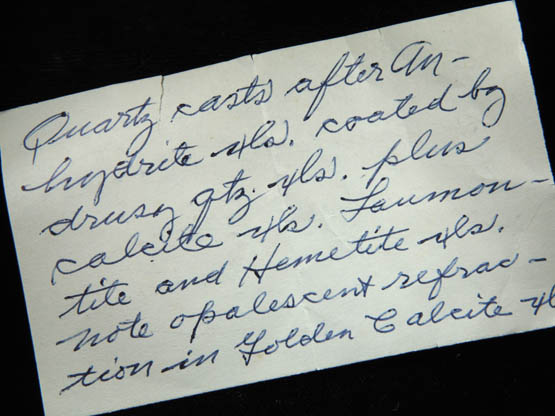 Quartz casts after An-
hydrite xls. coated by
drusy qtz. xls. plus
calcite xls. Laumon-
tite and Hemetite xls.
note opalescent refrac-
tion in Golden Calcite xl